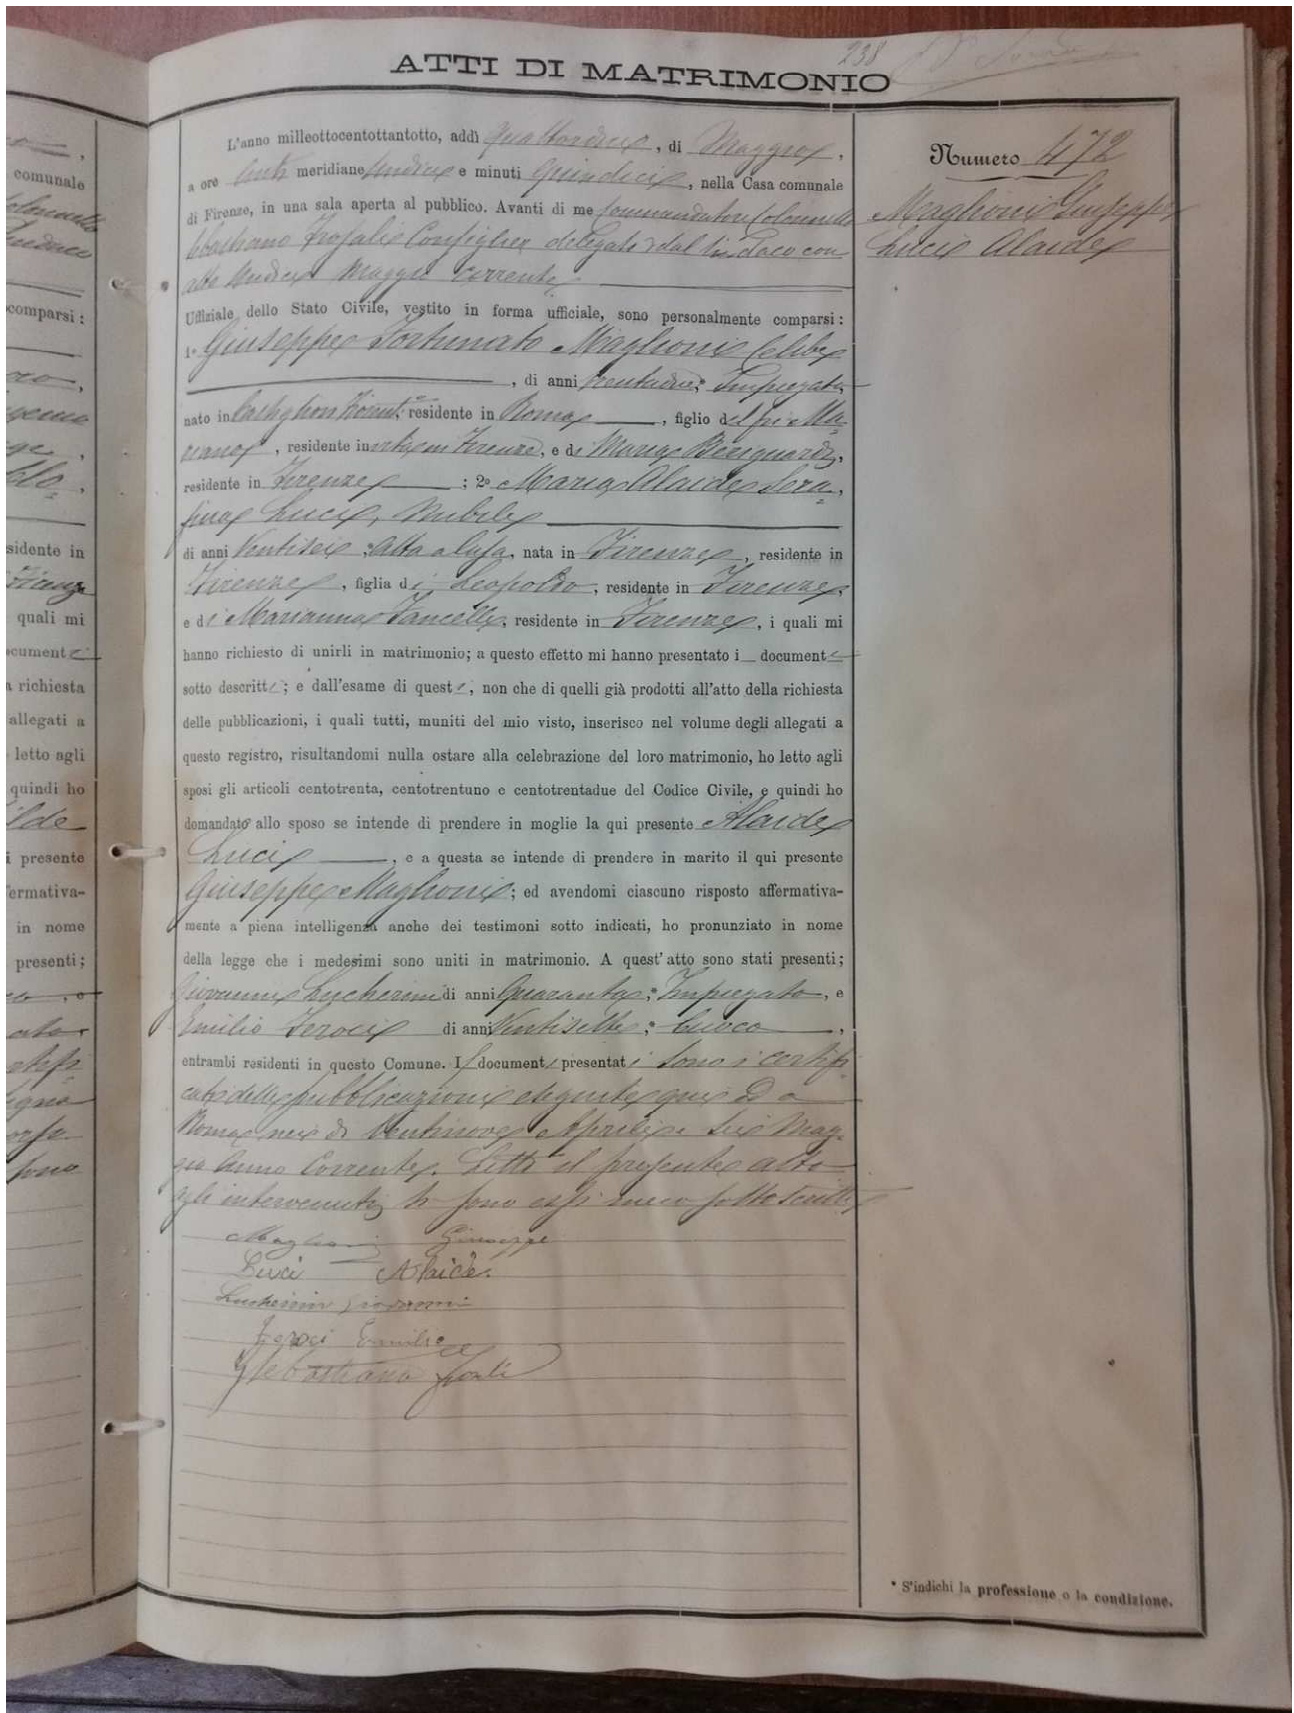 238
ATTI DI MATRIMONIO
L'anno milleottocentottantotto, addì quattordici, di Maggio,
a ore anti meridiane undici e minuti quindici, nella Casa comunale
di Firenze, in una sala aperta al pubblico. Avanti di me Commendatore Colonnello
Sebastiano Consigliere delegato dal Sindaco con
atto undici Maggio corrente
Uffiziale dello Stato Civile, vestito in forma ufficiale, sono personalmente comparsi:
1º Giuseppe Fortunato Maglioni Celibe
, di anni trentadue, * Impiegato,
nato in Castiglion Fiorent.no residente in Roma, figlio del fu Ma-
riano, residente in vita in Firenze, e di Maria
residente in Firenze; 2º Maria Alaide Sera-
fina Luci, Nubile
di anni Ventisei, * atta a casa, nata in Firenze, residente in
Firenze, figlia di Leopoldo, residente in Firenze,
e di Marianna Fancelli, residente in Firenze, i quali mi
hanno richiesto di unirli in matrimonio; a questo effetto mi hanno presentato i documenti
sotto descritti; e dall'esame di questi, non che di quelli già prodotti all'atto della richiesta
delle pubblicazioni, i quali tutti, muniti del mio visto, inserisco nel volume degli allegati a
questo registro, risultandomi nulla ostare alla celebrazione del loro matrimonio, ho letto agli
sposi gli articoli centotrenta, centotrentuno e centotrentadue del Codice Civile, e quindi ho
domandato allo sposo se intende di prendere in moglie la qui presente Alaide
Luci, e a questa se intende di prendere in marito il qui presente
Giuseppe Maglioni; ed avendomi ciascuno risposto affermativa-
mente a piena intelligenza anche dei testimoni sotto indicati, ho pronunziato in nome
della legge che i medesimi sono uniti in matrimonio. A quest'atto sono stati presenti;
Giovanni Lucherini di anni Quaranta, * Impiegato, e
Emilio Feroci di anni Ventisette, * Cuoco,
entrambi residenti in questo Comune. I documenti presentati sono i certifi-
cati delle pubblicazioni eseguite qui ed a
Roma nei dì Ventinove Aprile e sei Mag-
gio Anno Corrente. Letto il presente atto
agli intervenuti, si sono essi meco sottoscritti
Maglioni Giuseppe
Luci Alaide
Lucherini Giovanni
Feroci Emilio
Sebastiano
Numero 472
Maglioni Giuseppe
Luci Alaide
* S'indichi la professione o la condizione.
comunale
comparsi:
sidente in
Firenze
quali mi
ocumenti
a richiesta
allegati a
letto agli
quindi ho
ilde
i presente
fermativa-
in nome
presenti;